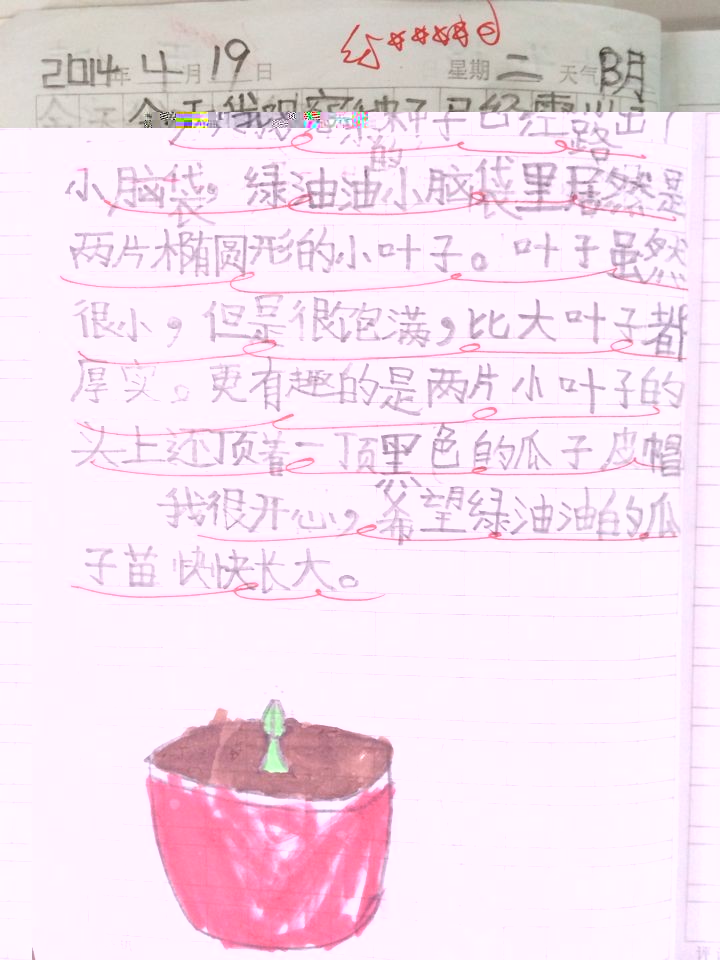 2014年 4月 19日 星期二 天气 阴
今天我观察种子已经露出了
的
小脑袋，绿油油小脑袋里居然是
两片椭圆形的小叶子。叶子虽然
很小，但是很饱满，比大叶子都
厚实。更有趣的是两片小叶子的
头上还顶着一顶黑色的瓜子皮帽
我很开心，希望绿油油的瓜
子苗快快长大。